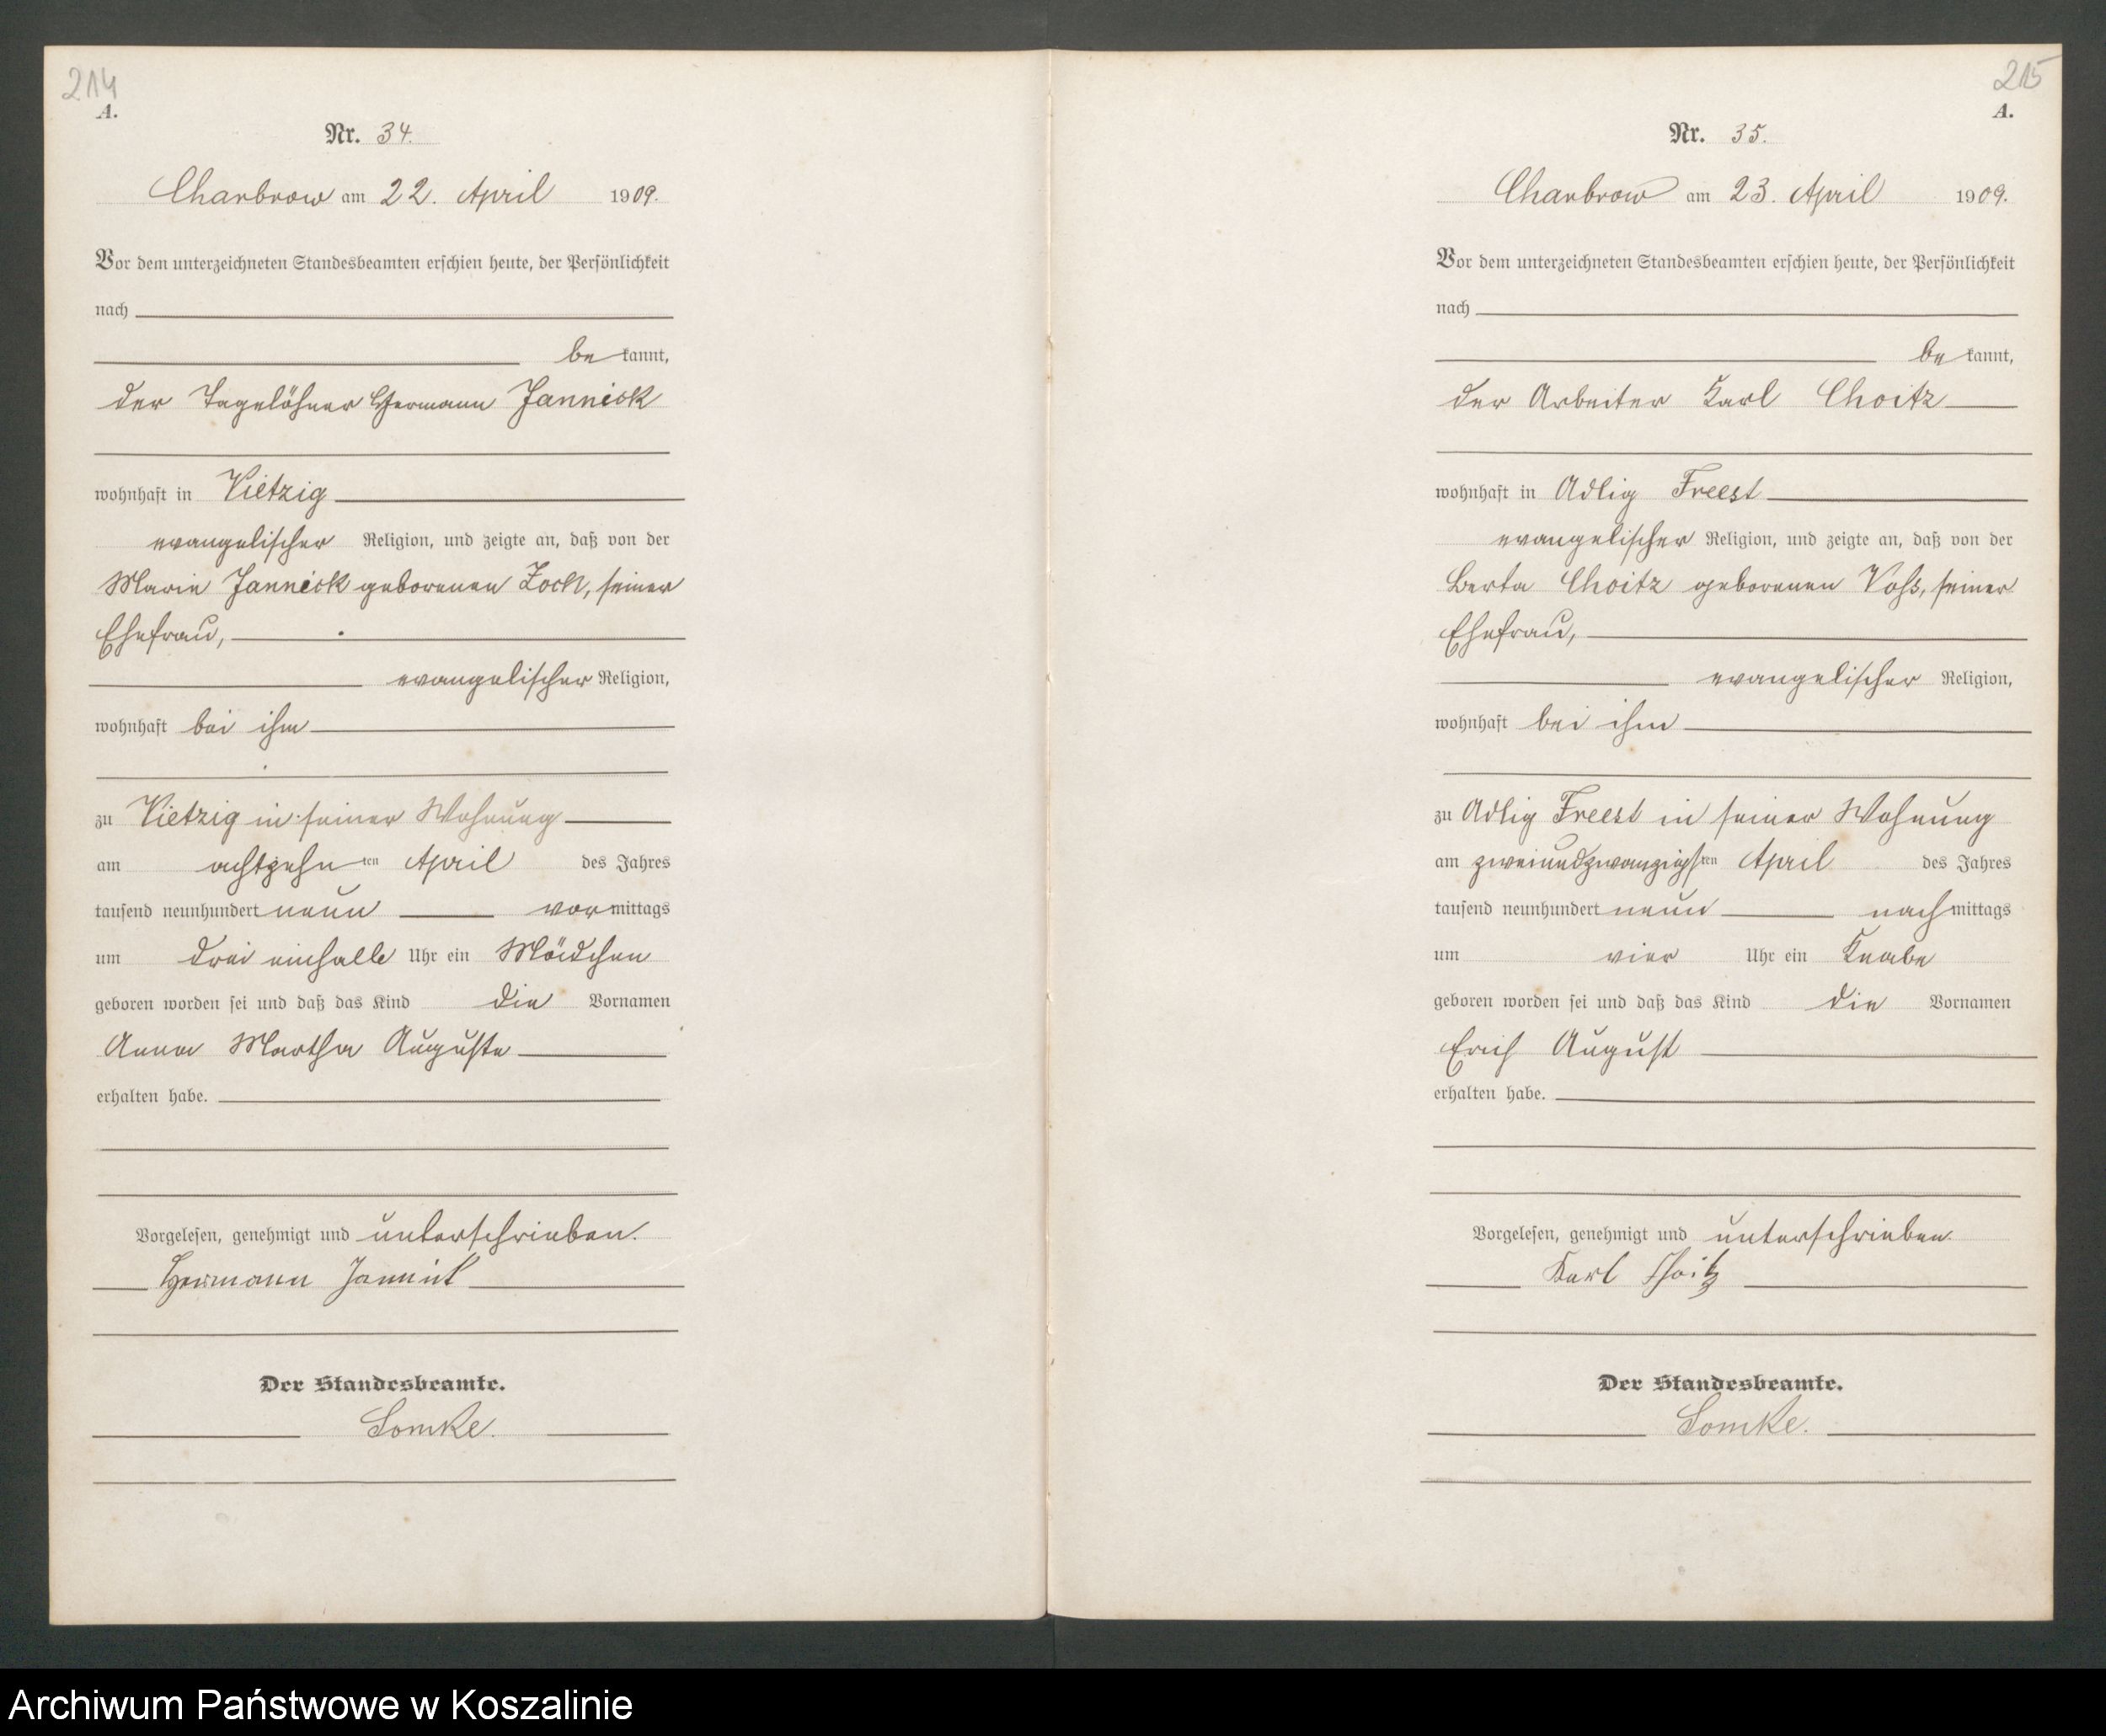 214
A.
Nr. 34.
Charbrow am 22. April 1909.
Vor dem unterzeichneten Standesbeamten erschien heute, der Persönlichkeit
nach
be kannt,
der Tagelöhner Hermann Jannick
wohnhaft in Vietzig
evangelischer Religion, und zeigte an, daß von der
Marie Jannick geborenen Zoch, seiner
Ehefrau,
evangelischer Religion,
wohnhaft bei ihm
zu Vietzig in seiner Wohnung
am achtzehnten April des Jahres
tausend neunhundert neun vormittags
um drei einhalb Uhr ein Mädchen
geboren worden sei und daß das Kind die Vornamen
Anna Martha Auguste
erhalten habe.
Vorgelesen, genehmigt und unterschrieben.
Hermann Jannick
Der Standesbeamte.
Lomke.
215
A.
Nr. 35.
Charbrow am 23. April 1909.
Vor dem unterzeichneten Standesbeamten erschien heute, der Persönlichkeit
nach
be kannt,
der Arbeiter Karl Choitz
wohnhaft in Adlig Freest
evangelischer Religion, und zeigte an, daß von der
Berta Choitz geborenen Voß, seiner
Ehefrau,
evangelischer Religion,
wohnhaft bei ihm
zu Adlig Freest in seiner Wohnung
am zweiundzwanzigsten April des Jahres
tausend neunhundert neun nachmittags
um vier Uhr ein Knabe
geboren worden sei und daß das Kind die Vornamen
Erich August
erhalten habe.
Vorgelesen, genehmigt und unterschrieben.
Karl Choitz
Der Standesbeamte.
Lomke.
Archiwum Państwowe w Koszalinie